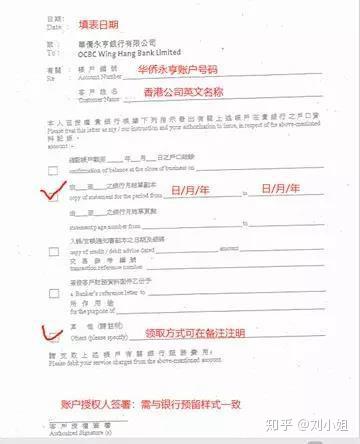 日期:
Date: 填表日期
致: 華僑永亨銀行有限公司
To: OCBC Wing Hang Bank Limited
有關 帳戶編號
Re Account Number 华侨永亨账户号码
客戶名稱
Customer Name 香港公司英文名称
本人茲授權貴銀行根據下列指示發出有關上述帳戶在貴銀行之戶口資料記錄。
Please treat this letter as my / our instruction and your authorization to issue, in respect of the above-mentioned account :-
確認帳戶截至 年 月 日之戶口結餘
confirmation of balance at the close of business on
由 至 之銀行月結單副本
copy of statement for the period from 日/月/年 to 日/月/年
由 至 之銀行月結單頁數
statement page number from to
copy of credit / debit advice dated amount
交易參考編號
transaction reference number
a Banker's reference letter to
所作用途
for the purpose of
其他 (請註明)
Others (please specify) 领取方式可在备注注明
請支取上述帳戶有關銀行服務費用:
Please debit your service charges from the above-mentioned account.
账户授权人签署:需与银行预留样式一致
客戶授權簽署
Authorized Signature (s)
知乎 @刘小姐